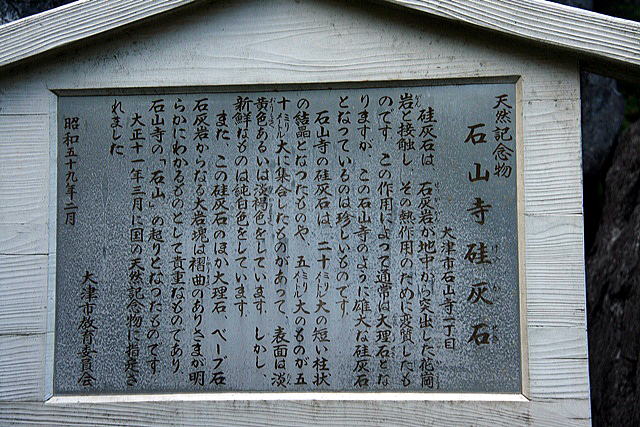 天然記念物
石山寺硅灰石
大津市石山寺一丁目
硅灰石は、石灰岩が地中から突出した花崗
岩と接触し、その熱作用のために変質したも
のです。この作用によって通常は大理石とな
りますが、この石山寺のように雄大な硅灰石
となっているのは珍しいものです。
石山寺の硅灰石は、二十ミリメートル大の短い柱状
の結晶となったものや、五ミリメートル大のものが五
十ミリメートル大に集合したものがあって、表面は淡
黄色あるいは淡褐色をしています。しかし、
新鮮なものは純白色をしています。
また、この硅灰石のほか大理石、ベーブ石
石灰岩からなる大岩塊は褶曲のありさまが明
らかにわかるものとして貴重なものであり
石山寺の「石山」の起りとなったものです。
大正十一年三月に国の天然記念物に指定さ
れました。
昭和五十九年二月
大津市教育委員会